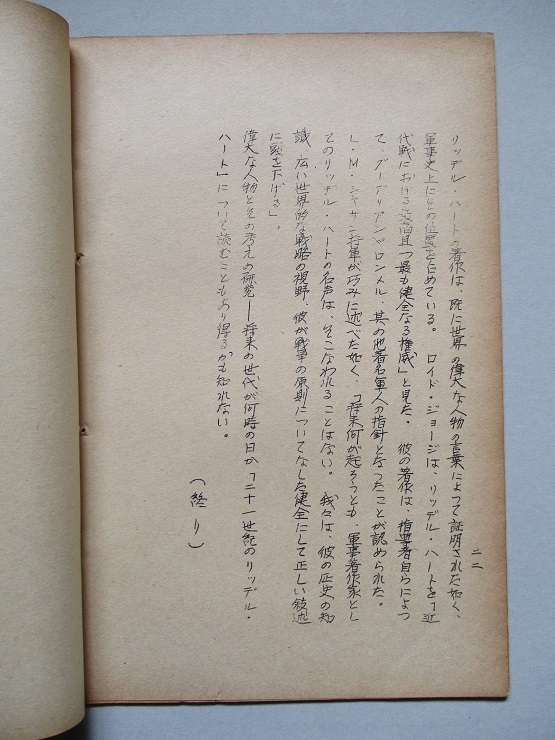 二二
リッデル・ハートの著作は、既に世界の偉大な人物の言葉によって証明された如く、
軍事史上にその位置を占めている。 ロイド・ジョージは、リッデル・ハートを「近
代戦における 最も健全なる権威」と見た。 彼の著作は、指導者自らによっ
て、グーデリアンやロンメル、其の他著名軍人の指針となったことが認められた。
L・M・シャサン将軍が巧みに述べた如く、「将来何が起ろうとも、軍事著作家とし
てのリッデル・ハートの名声は、そこなわれることはない。 我々は、彼の歴史の知
識、広い世界的な戦略の視野、彼が戦争の原則についてなした健全にして正しい叙述
に頭を下げる」。
偉大な人物とその考えの研究—将来の世代が何時の日か「二十一世紀のリッデル・
ハート」について読むこともあり得るかも知れない。
(終り)